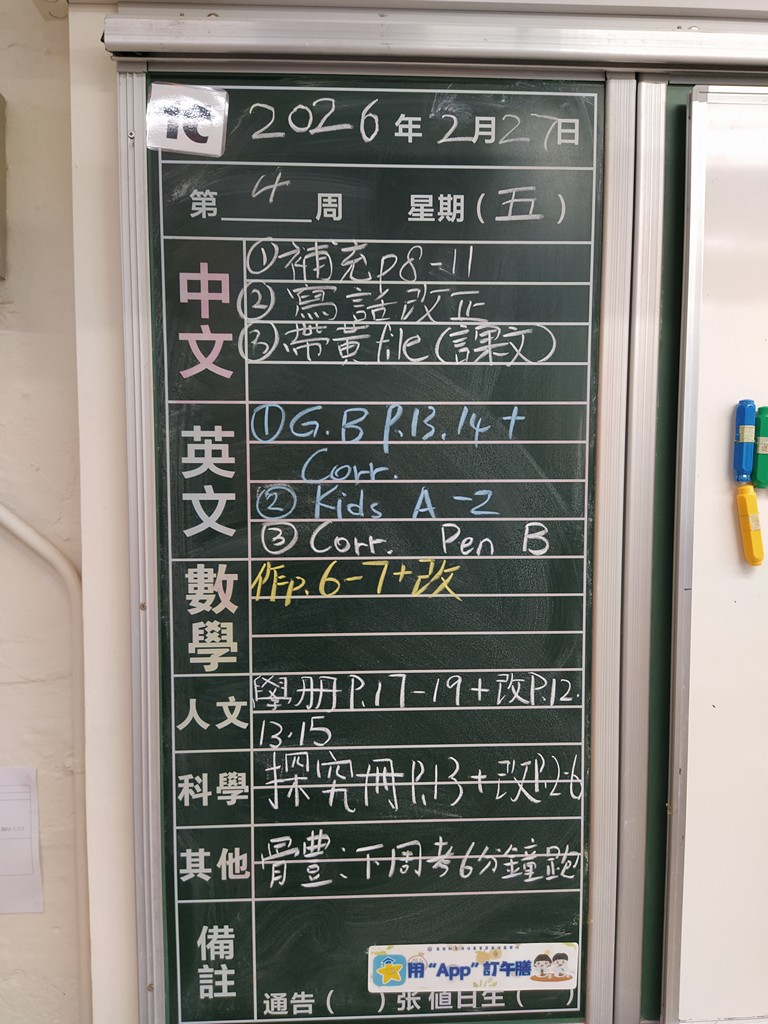 1C 2026年2月27日
第 4 周 星期(五)
中文
①補充p8-11
②寫話改正
③帶黃file(課文)
英文
①G.B P.13.14+
Corr.
② Kids A-Z
③ Corr. Pen B
數學
作p.6-7+改
人文
學册P.17-19+改P.12.
13.15
科學
探究冊P.13+改P.2-6
其他
骨豊:下周考6分鐘跑
備註
用“App”訂午膳
通告( )張 值日生( )